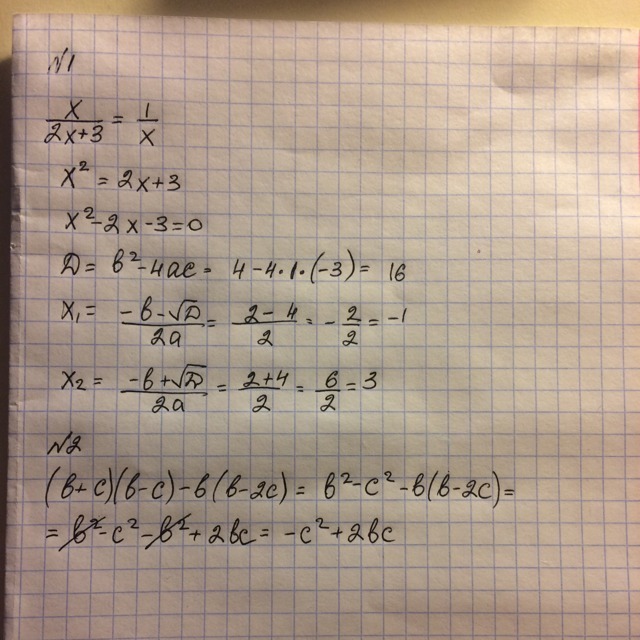 №1
x/(2x+3) = 1/x
x² = 2x+3
x²-2x-3=0
D = b²-4ac = 4-4·1·(-3) = 16
x₁ = (-b-√D)/2a = (2-4)/2 = -2/2 = -1
x₂ = (-b+√D)/2a = (2+4)/2 = 6/2 = 3
№2
(b+c)(b-c)-b(b-2c) = b²-c²-b(b-2c)=
= b²-c²-b²+2bc = -c²+2bc